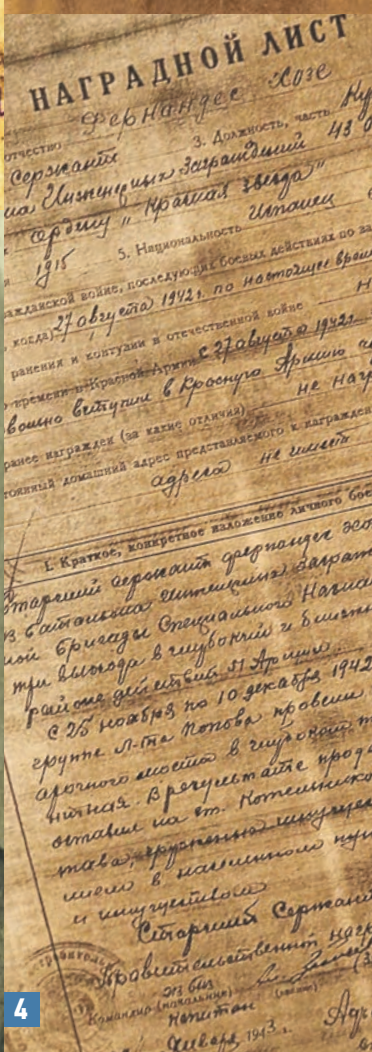 НАГРАДНОЙ ЛИСТ
отчество Фернандес Хозе
Сержант 3. Должность, часть
Инженерных Заграждений 43
Ордену „Красная Звезда"
1915 5. Национальность Испанец
ажданской войне, последующих боевых действиях по за
когда) 27 августа 1942 г. по настоящее врем
ранения и контузии в отечественной войне
времени в Красной Армии С 27 августа 1942 г.
вступил в Красную Армию
ранее награжден (за какие отличия) не наг
тоянный домашний адрес представляемого к награжден
адреса не имеет
I. Краткое, конкретное изложение личного бое
тарший сержант Фернандес Хо
батальона Инженерных Заграж
ной бригады Специального Назна
три выхода в глубокий и ближн
районе действий 51 Армии.
С 25 ноября по 10 декабря 1942
группе Л-та Попова провели
арочного моста в глубоком т
В результате прод
на ст. Котельнико
в населенном пун
и имуществом
Старший Сержант
Правительственной наг
Командир (начальник) (звание)
капитан
Января 1943 г.
4